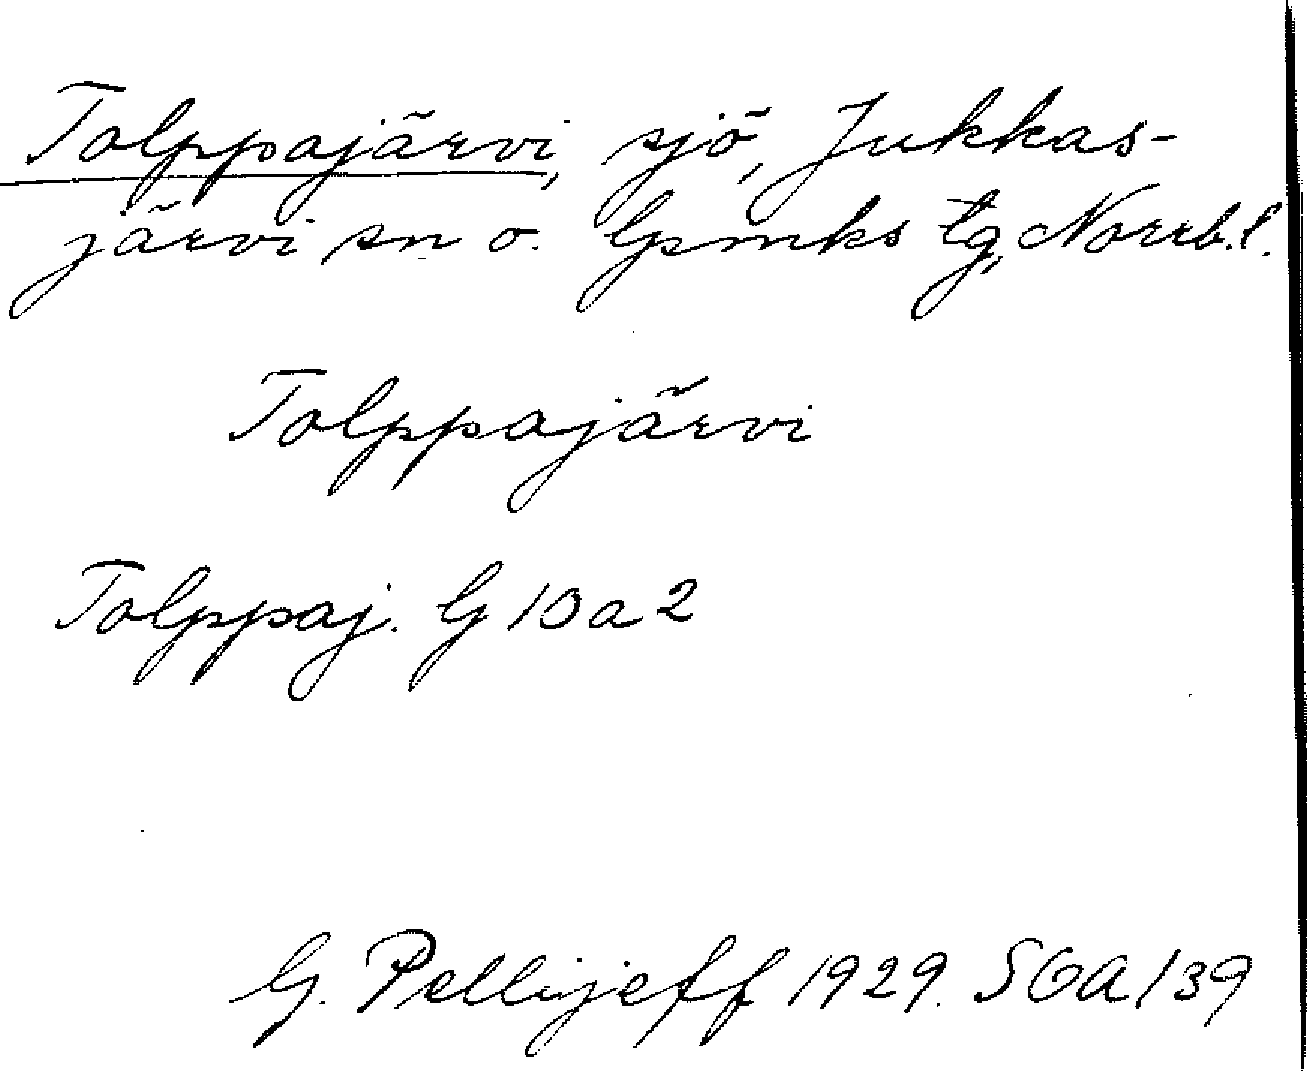 Tolppajärvi, sjö, Jukkas-
järvi sn o. Gsmks tg, Norrb.l.
Tolppajärvi
Tolppaj. G 10 a 2
G. Pellijeff 1929. SOA 139